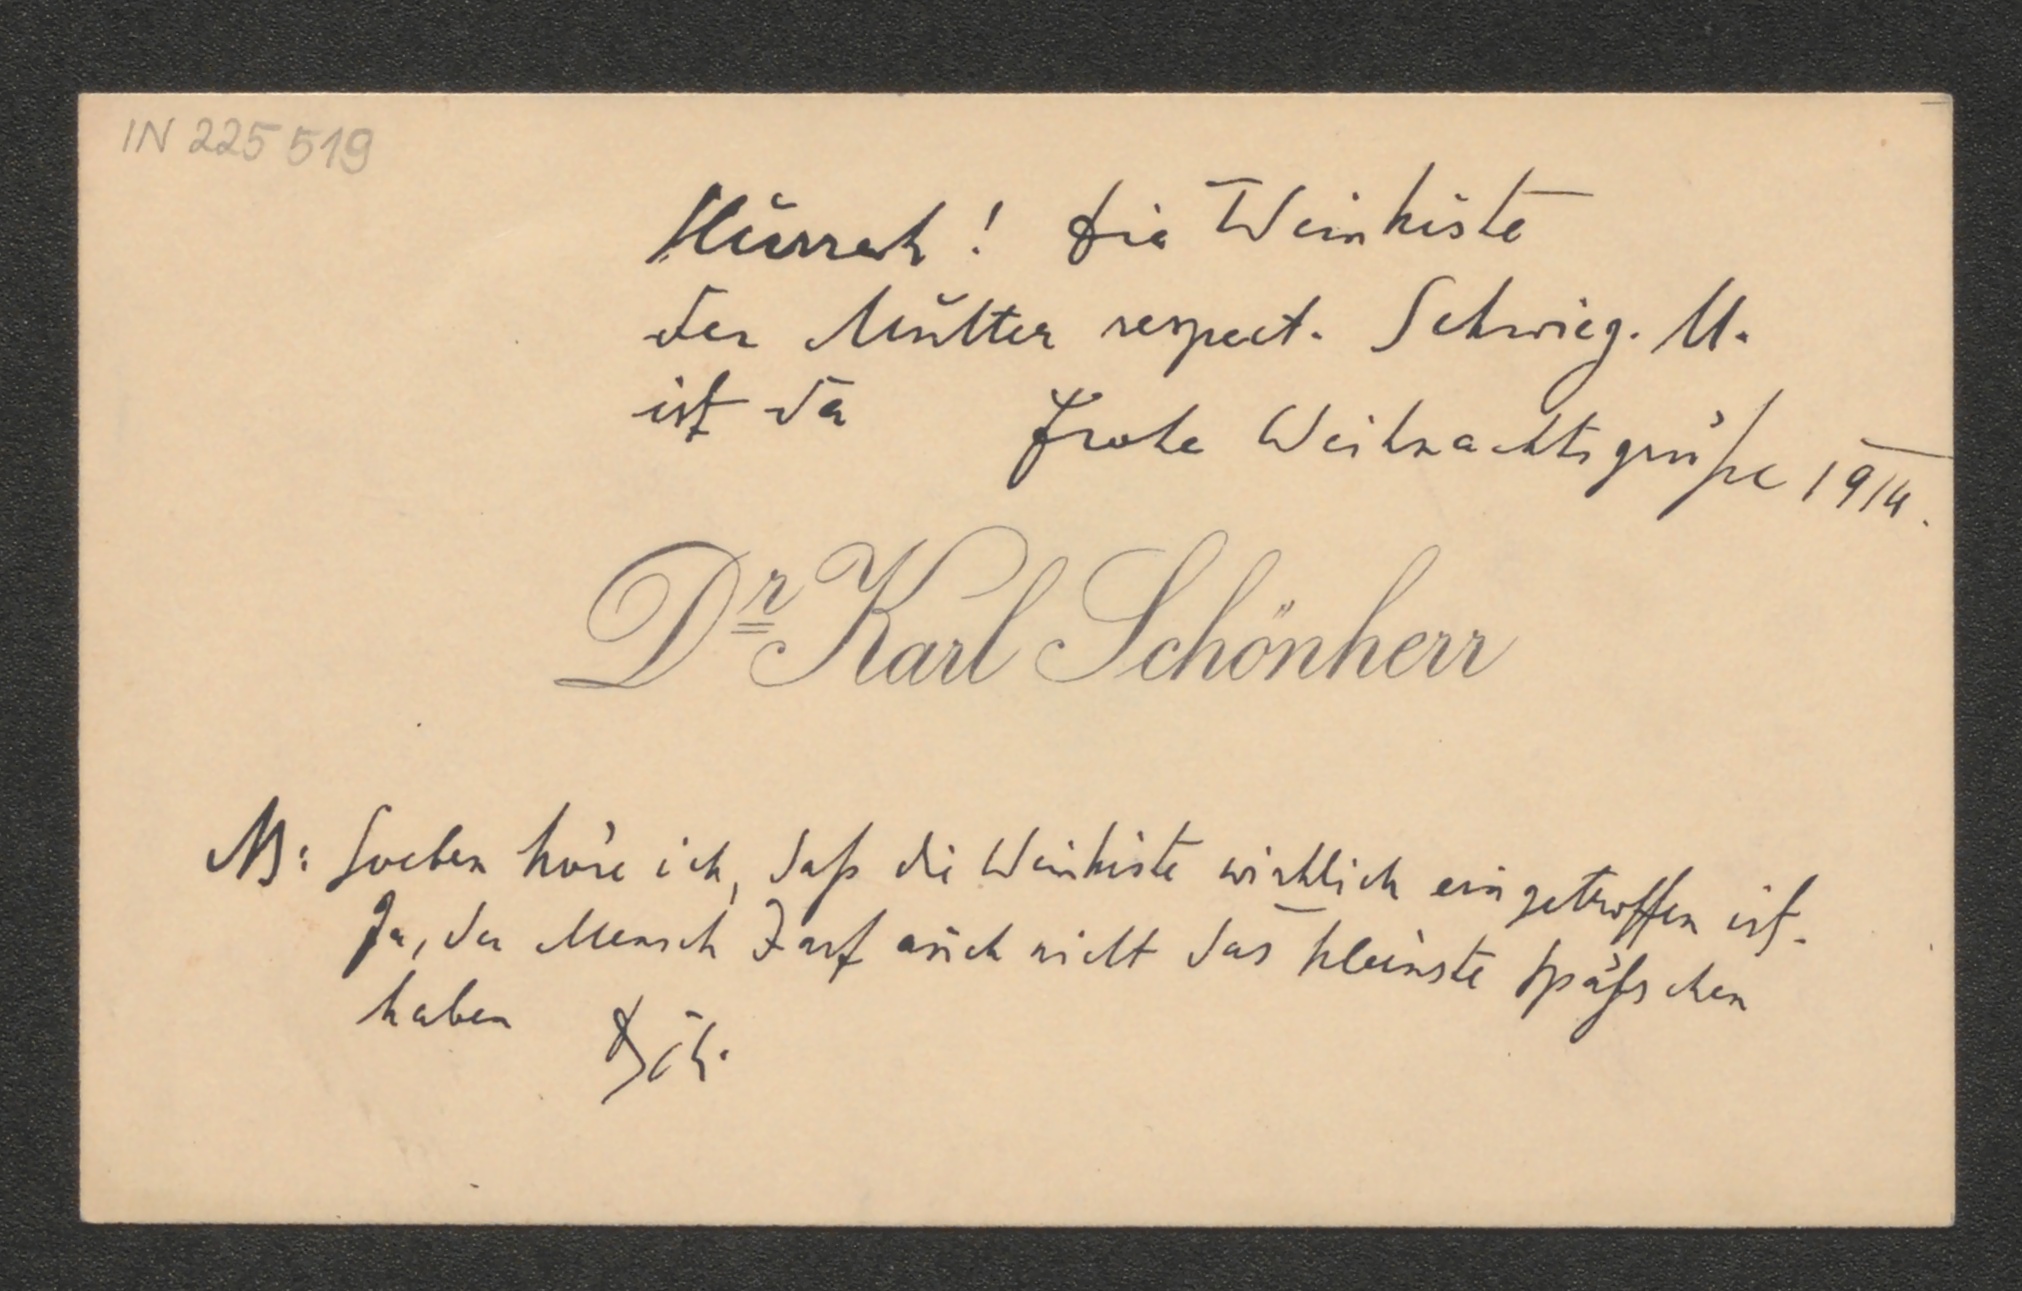 IN 225519
Hurrah! Die Weinkiste
der Mutter respect. Schwieg. M.
ist da Frohe Weihnachtsgrüße 1914.
Dr Karl Schönherr
NB: Soeben höre ich, daß die Weinkiste wirklich eingetroffen ist.
Ja, der Mensch darf auch nicht das kleinste Späßchen
haben